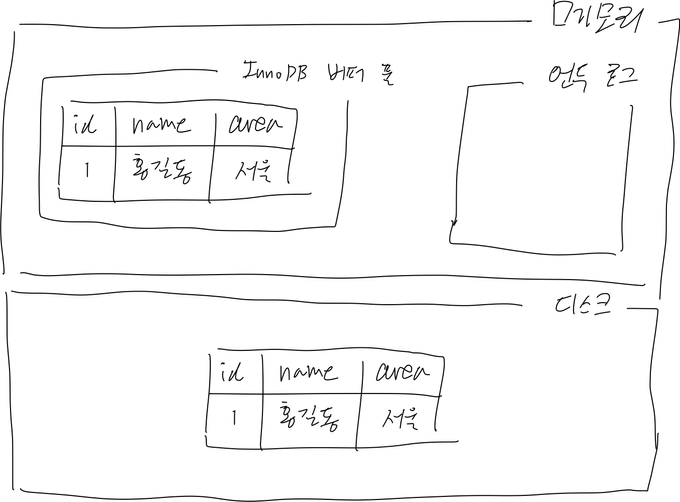 메모리
InnoDB 버퍼 풀
언두 로그
id name area
1 홍길동 서울
디스크
id name area
1 홍길동 서울